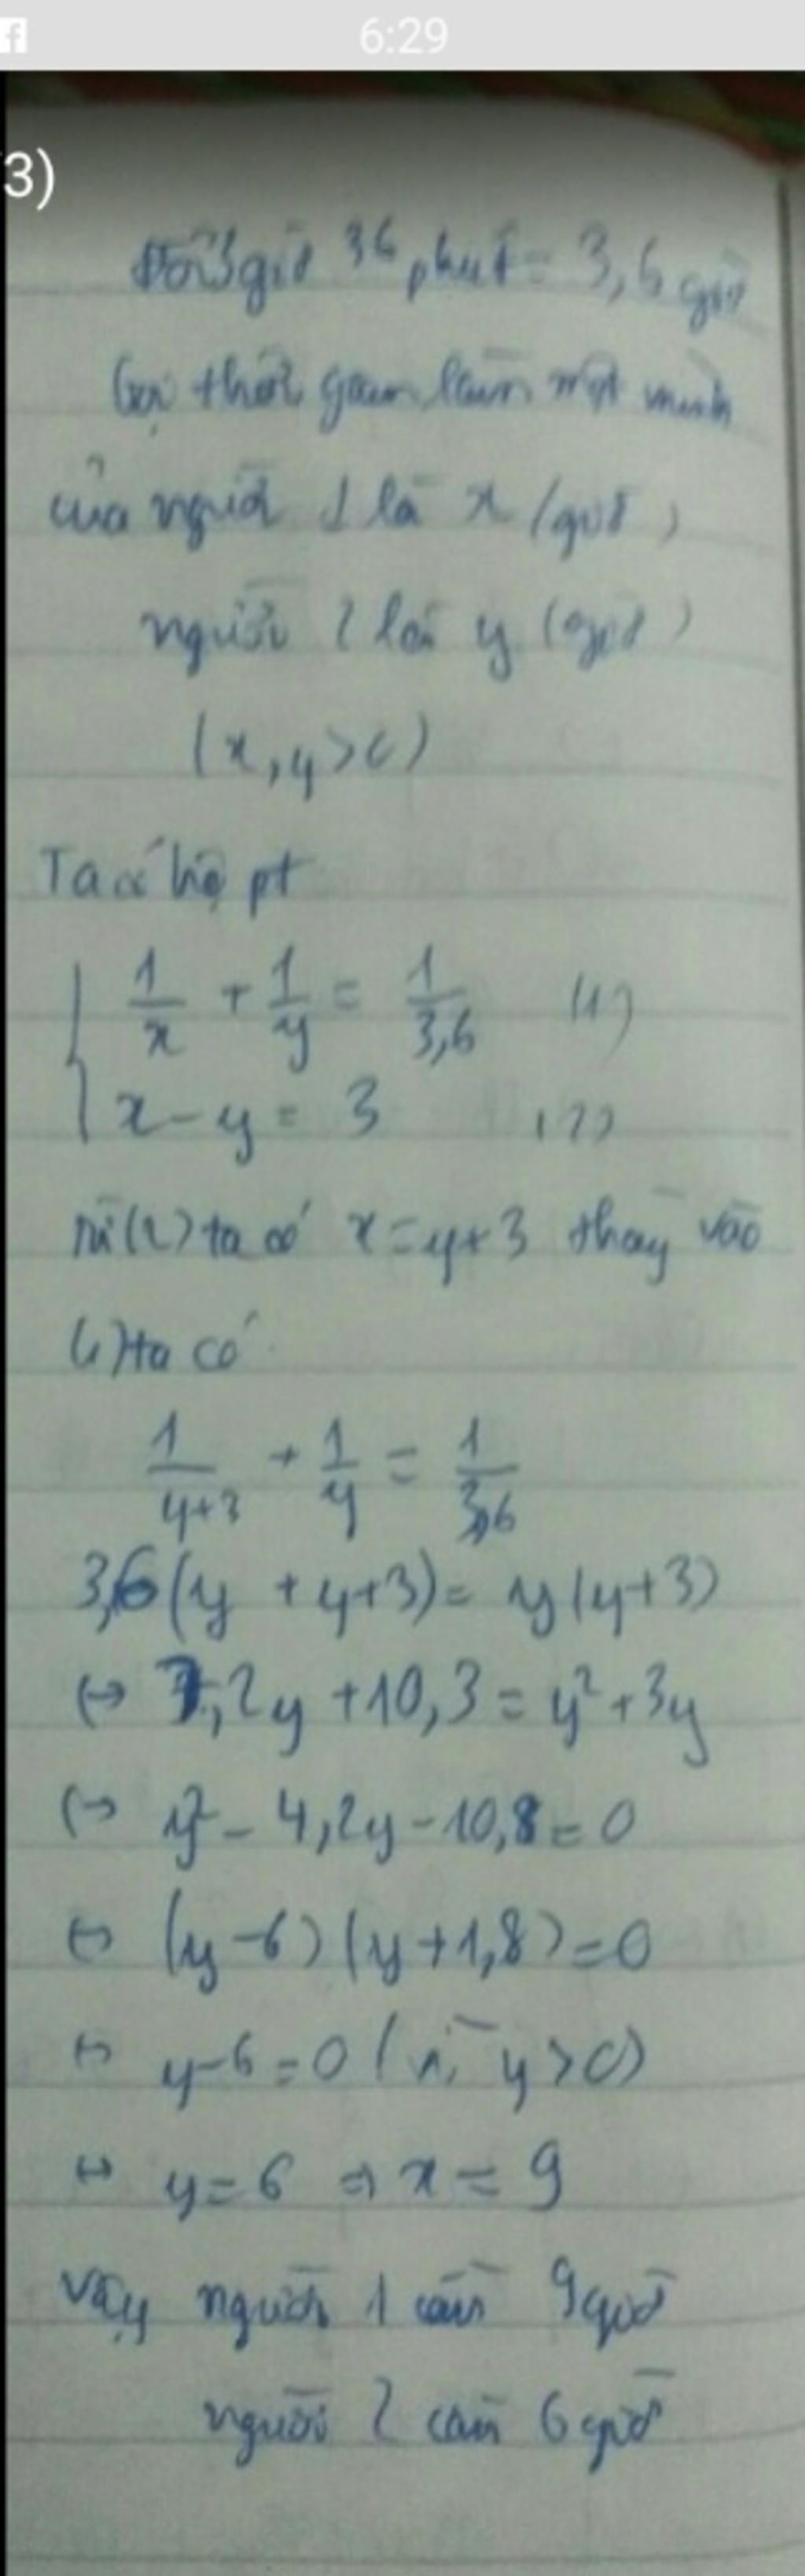 6:29
3)
Đổi 3 giờ 36 phút = 3,6 giờ
Gọi thời gian làm một mình
của người 1 là x (giờ)
người 2 là y (giờ)
(x, y > 0)
Ta có hệ pt
{ 1/x + 1/y = 1/3,6 (1)
{ x - y = 3 (2)
từ (2) ta có x = y + 3 thay vào
(1) ta có
1/(y+3) + 1/y = 1/3,6
3,6(y + y+3) = y(y+3)
↔ 7,2y + 10,3 = y² + 3y
↔ y² - 4,2y - 10,8 = 0
↔ (y - 6)(y + 1,8) = 0
↔ y - 6 = 0 (vì y > 0)
↔ y = 6 ⇒ x = 9
Vậy người 1 cần 9 giờ
người 2 cần 6 giờ